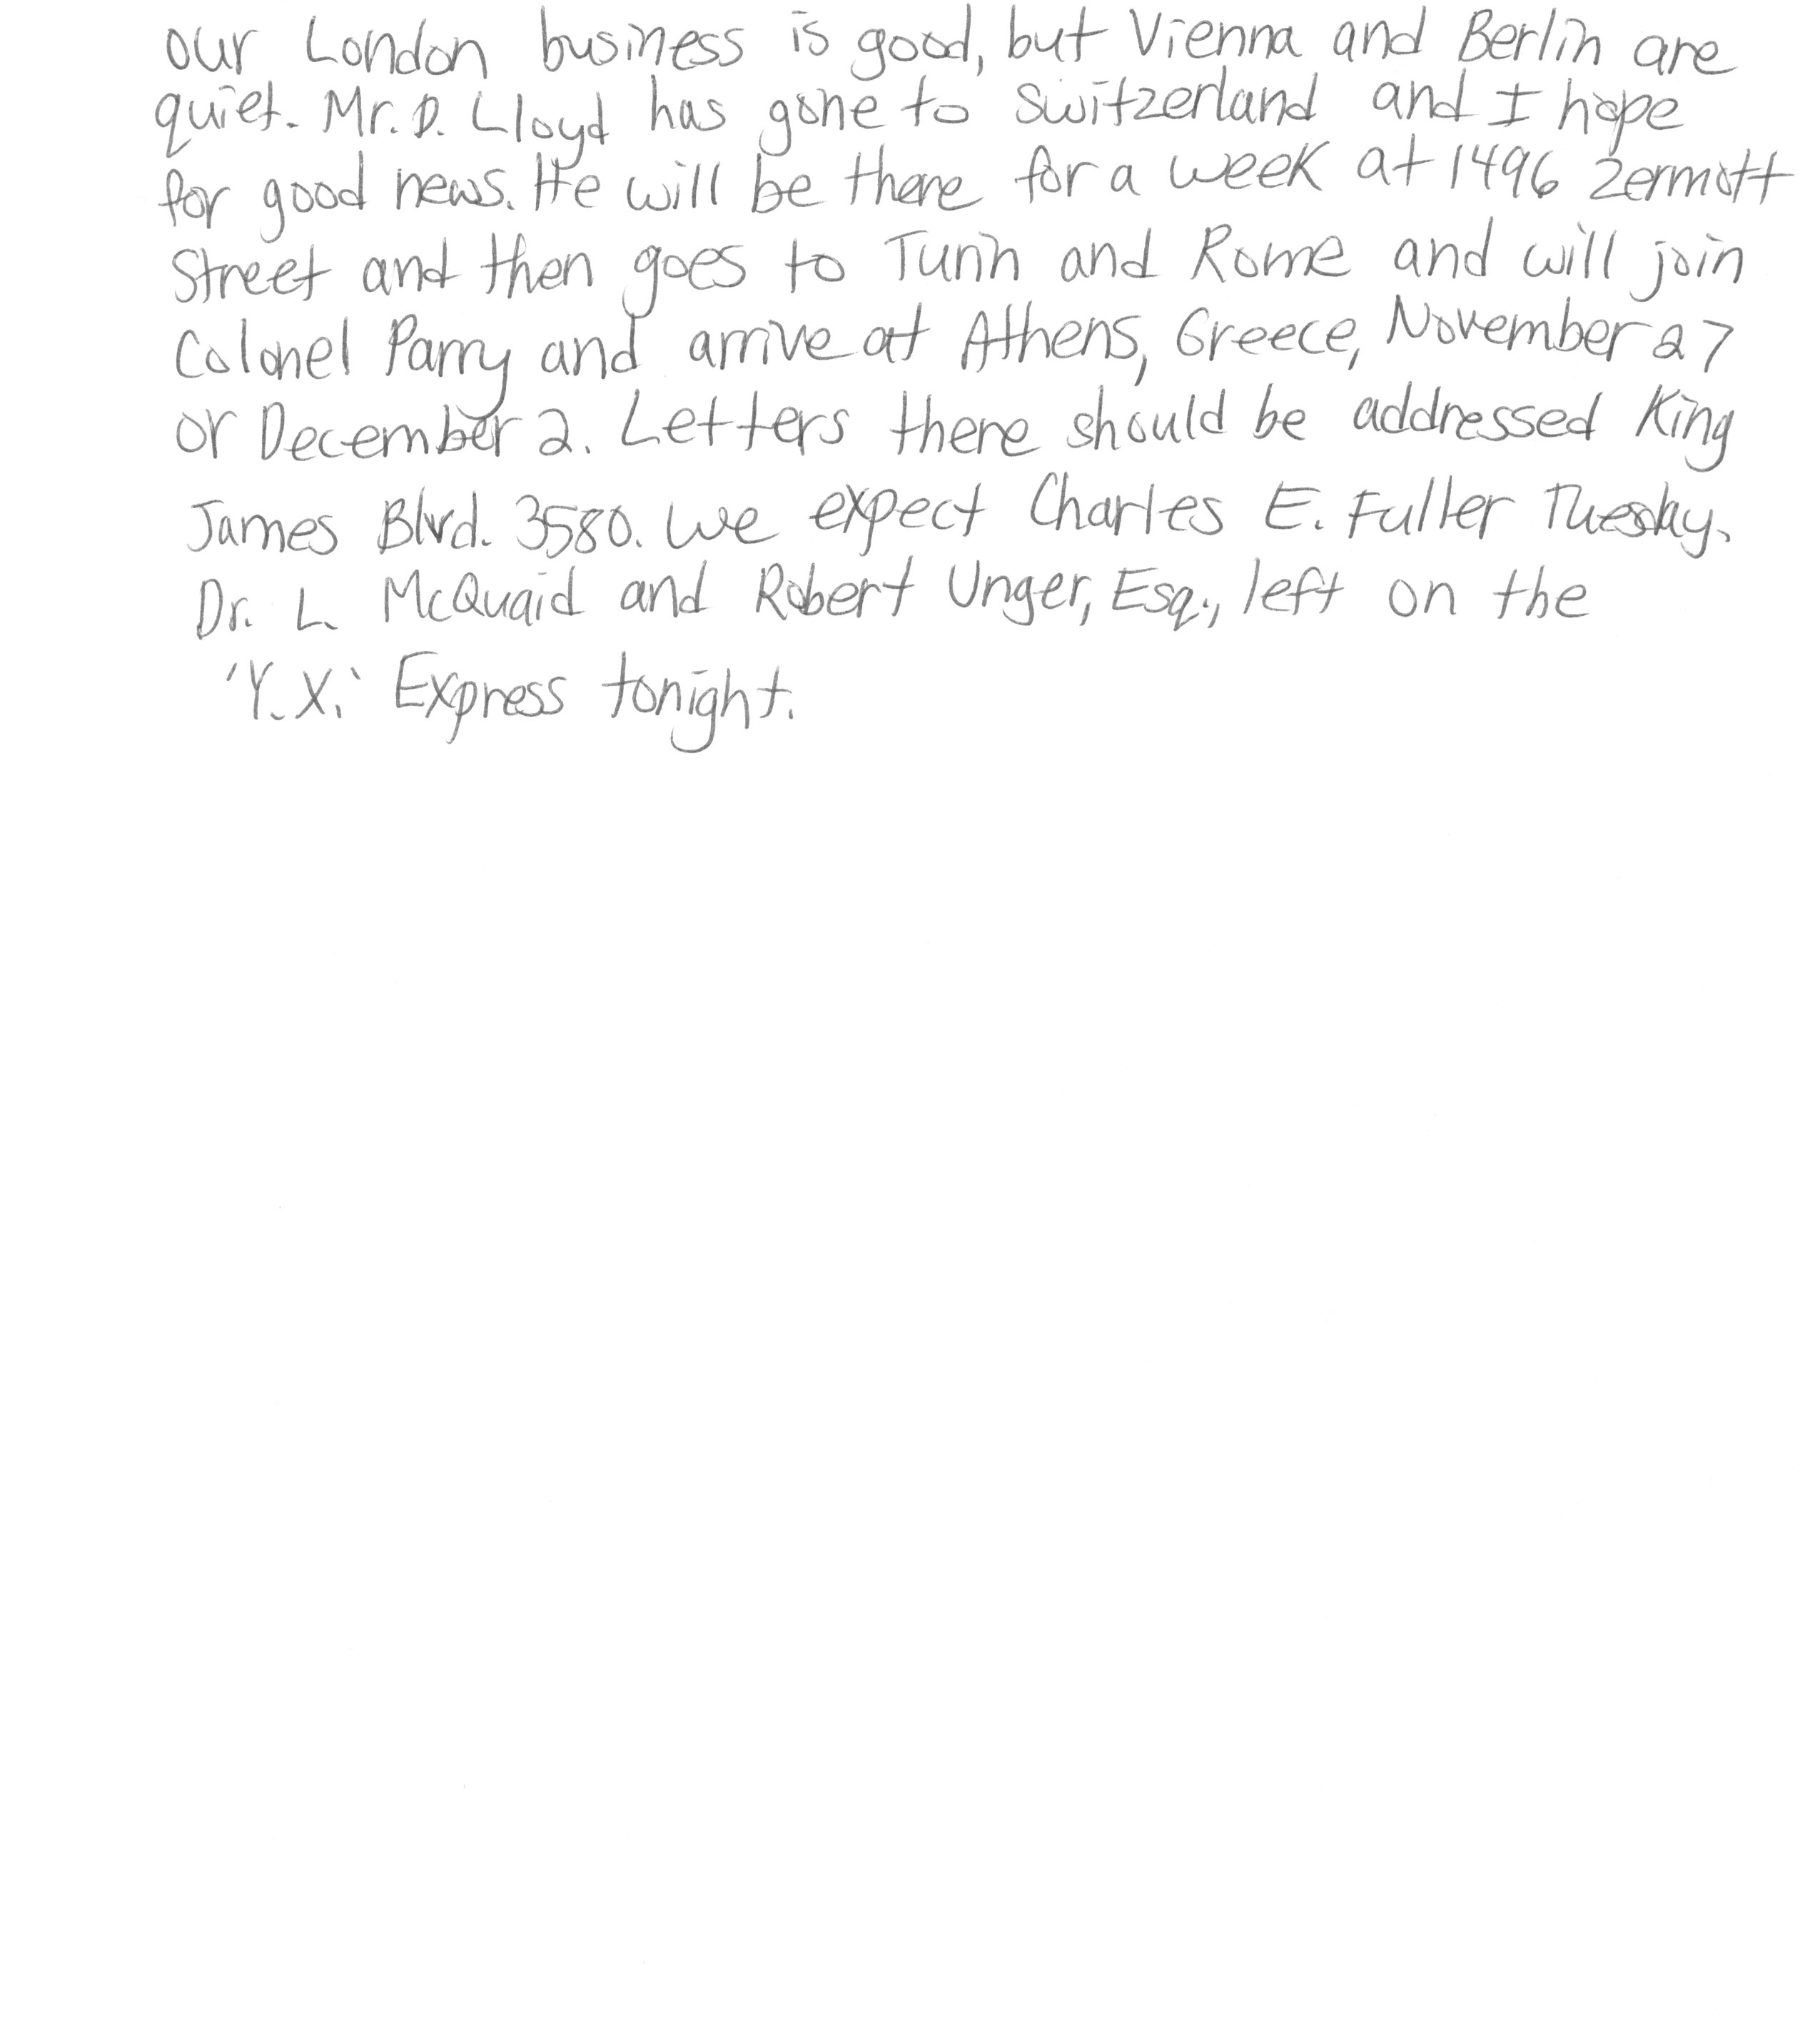 our London business is good, but Vienna and Berlin are
quiet. Mr. D. Lloyd has gone to Switzerland and I hope
for good news. He will be there for a week at 1496 Zermott
Street and then goes to Turin and Rome and will join
Colonel Parry and arrive at Athens, Greece, November 27
or December 2. Letters there should be addressed King
James Blvd. 3580. We expect Charles E. Fuller Tuesday.
Dr. L. McQuaid and Robert Unger, Esq., left on the
'Y.X.' Express tonight.